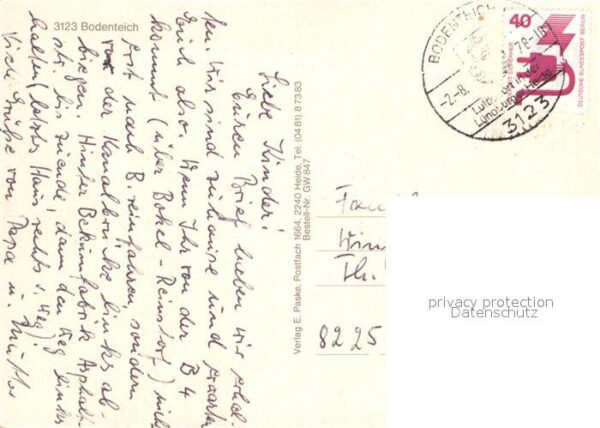 3123 Bodenteich
Liebe Kinder!
Euren Brief haben wir erhal-
ten. Wir sind zuhause und erwarten
Euch also. Wenn Ihr von der B 4
kommt (über Bokel-Reinstorf) nicht
erst nach B. reinfahren, sondern
vor der Kanalbrücke links ab-
biegen. Hinter Betonfabrik Asphalt-
str. bis zuende, dann den Weg links
halten (letztes Haus rechts v. Weg)
Viele Grüße von Papa u. Mutter
Verlag E. Paske, Postfach 1664, 2240 Heide, Tel. (0481) 87383
Bestell-Nr. GW 847
BODENTEICH
-2.-8.
78-18
Luftkurort in der
Lüneburger Heide
3123
40
DEUTSCHE BUNDESPOST BERLIN
8225
privacy protection
Datenschutz